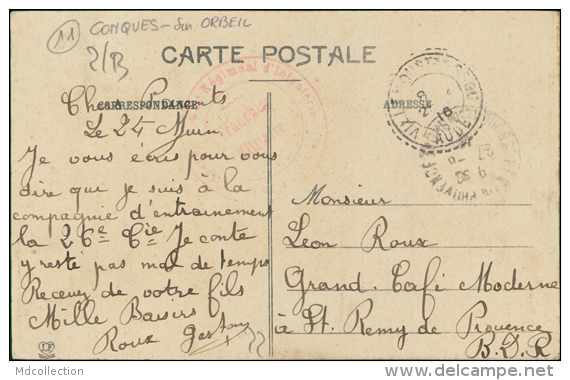 11
CONQUES - Sur ORBEIL
2/B
CARTE POSTALE
CORRESPONDANCE
ADRESSE
Régiment d'Infanterie
AUDE
Chers Parents
Le 24
Je vous écris pour vous
dire que je suis à la
compagnie d'entrainement
la 26e Cie Je conte
y resté pas mal de temps
Recevez de votre fils
Mille Baisers
Roux
22
Monsieur
Leon Roux
Grand Café Moderne
à St. Remy de Provence
B. D. R
LF
Mdcollection
delcampe.net